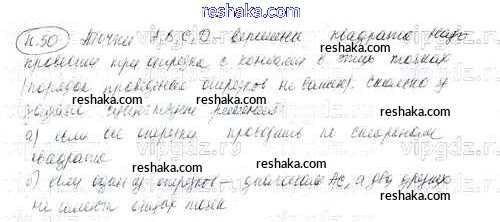 reshaka.ru
н.50 Точки А.В.С.D. вершины квадрата. Надо
провести три отрезка с концами в этих точках
reshaka.ru reshaka.ru
(порядок проведения отрезков не важен). Сколько у
задачи существует решений
reshaka.ru reshaka.ru
а) если все отрезки проводить по сторонам
квадрата
reshaka.ru
б) если один из отрезков - диагональ АС, а два других
не имеют общих точек
reshaka.ru reshaka.ru